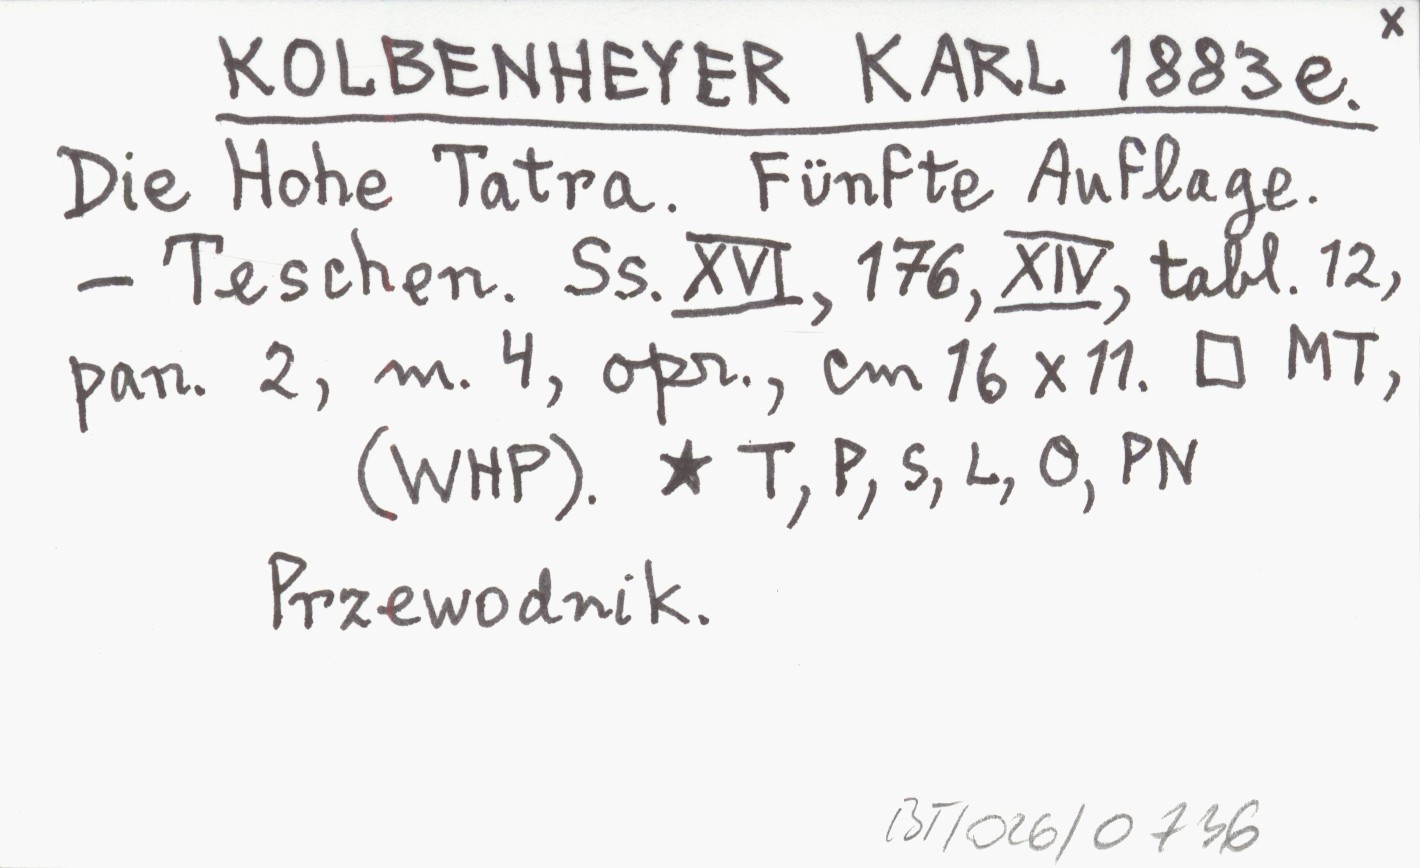 x
KOLBENHEYER KARL 1883e.
Die Hohe Tatra. Fünfte Auflage.
– Teschen. Ss. XVI, 176, XIV, tabl. 12,
pan. 2, m. 4, opr., cm 16 x 11. □ MT,
(WHP). ★ T, P, S, L, O, PN
Przewodnik.
BT/026/0736